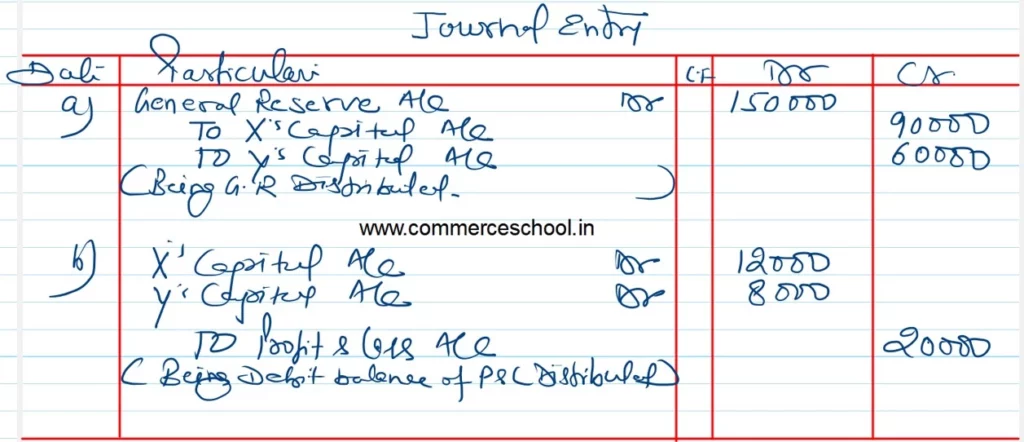 Journal Entry
Date Particulars L.F Dr Cr
a) General Reserve A/c Dr 150000
To X's Capital A/c 90000
To Y's Capital A/c 60000
(Being G.R Distributed. )
www.commerceschool.in
b) X's Capital A/c Dr 12000
Y's Capital A/c Dr 8000
To Profit & Loss A/c 20000
(Being Debit balance of P&L Distributed)